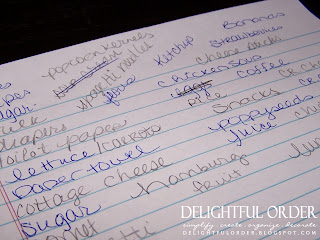 popcorn kernels
Bananas
Strawberries
Ketchup
spaghetti noodles
flour
Cheese sticks
Chicken Soup
Coffee
Rice
Snacks
diapers
toilet paper
lettuce/carrots
paper towel
cottage cheese
sugar
hamburg
fruit
poppyseeds
juice
DELIGHTFUL ORDER
simplify. create. organize. decorate.
DELIGHTFULORDER.BLOGSPOT.COM